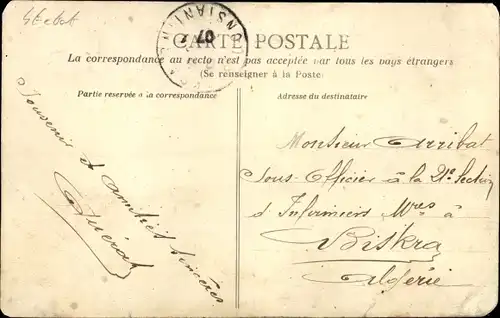 CONSTANTINE
07
CARTE POSTALE
La correspondance au recto n'est pas acceptée par tous les pays étrangers
(Se renseigner à la Poste)
Partie reservée à la correspondance
Souvenir et
amitiés sincères
Adresse du destinataire
Monsieur Arribat
Sous-Officier à la 21e Section
d'Infirmiers Mres à
Biskra
Algérie